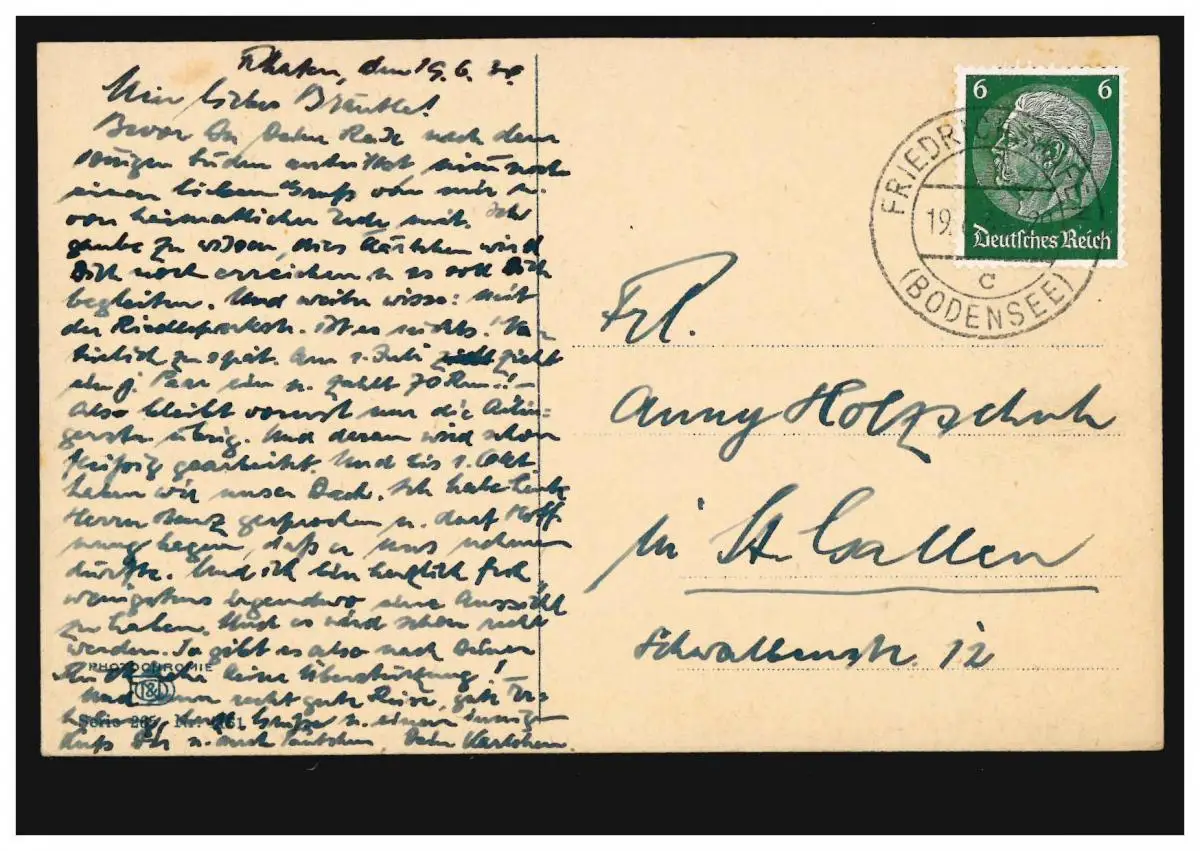 F'hafen, den 19.6.
Mein liebes Bräutle!
Bevor Du Deine Reise nach dem
sonnigen Süden antrittst nimm noch
einen lieben Gruß von mir u.
von heimatlicher Erde mit. Ich
glaube zu wissen, dies Kärtchen wird
Dich noch erreichen u. es soll Dich
begleiten. Und weiter wisse: Mit
der Riedleparkstr. ist es nichts! Na-
türlich zu spät. Am 1. Juli zieht
ein j. Paar ein u. zahlt 70 Rm.!! –
Also bleibt vorerst nur die
gerstr. übrig. Und daran wird schon
fleißig gearbeitet. Und bis 1. Okt.
haben wir unser Dach. Ich habe heute
Herrn gesprochen u. darf Hoff-
nung hegen, daß er uns nehmen
dürfte. Und ich bin herzlich froh,
wenigstens irgendwo eine Aussicht
zu haben. Und es wird schon recht
werden. Ja gibt es also nach Deiner
keine Überstürzung!
Und nun recht gute Reise, gute
Grüße u. einen innigen
Kuß Dir u. auch Dein Karlchen.
PHOTOCHROMIE
Serie Nr.
6 6
Deutsches Reich
FRIEDRICHSHAFEN
19.
c
(BODENSEE)
Frl.
Anny Holzschuh
in St. Gallen
Schwalbenstr. 12